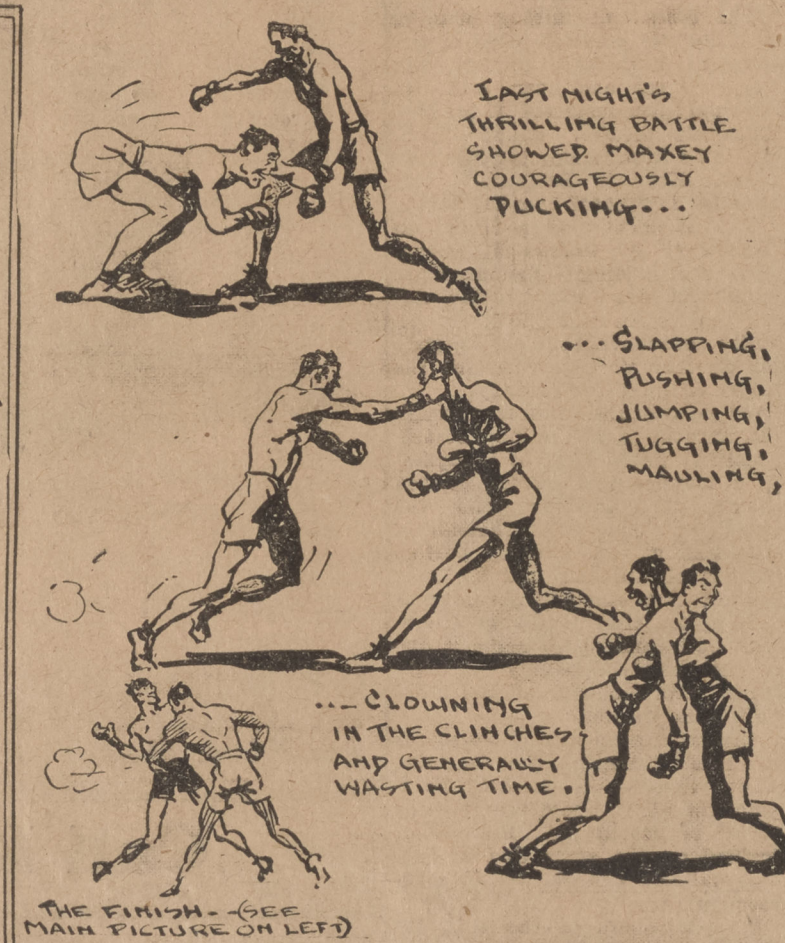 LAST NIGHT'S
THRILLING BATTLE
SHOWED MAXEY
COURAGEOUSLY
DUCKING...
...SLAPPING,
PUSHING,
JUMPING,
TUGGING,
MAULING,
...CLOWNING
IN THE CLINCHES
AND GENERALLY
WASTING TIME.
THE FINISH--(SEE
MAIN PICTURE ON LEFT)